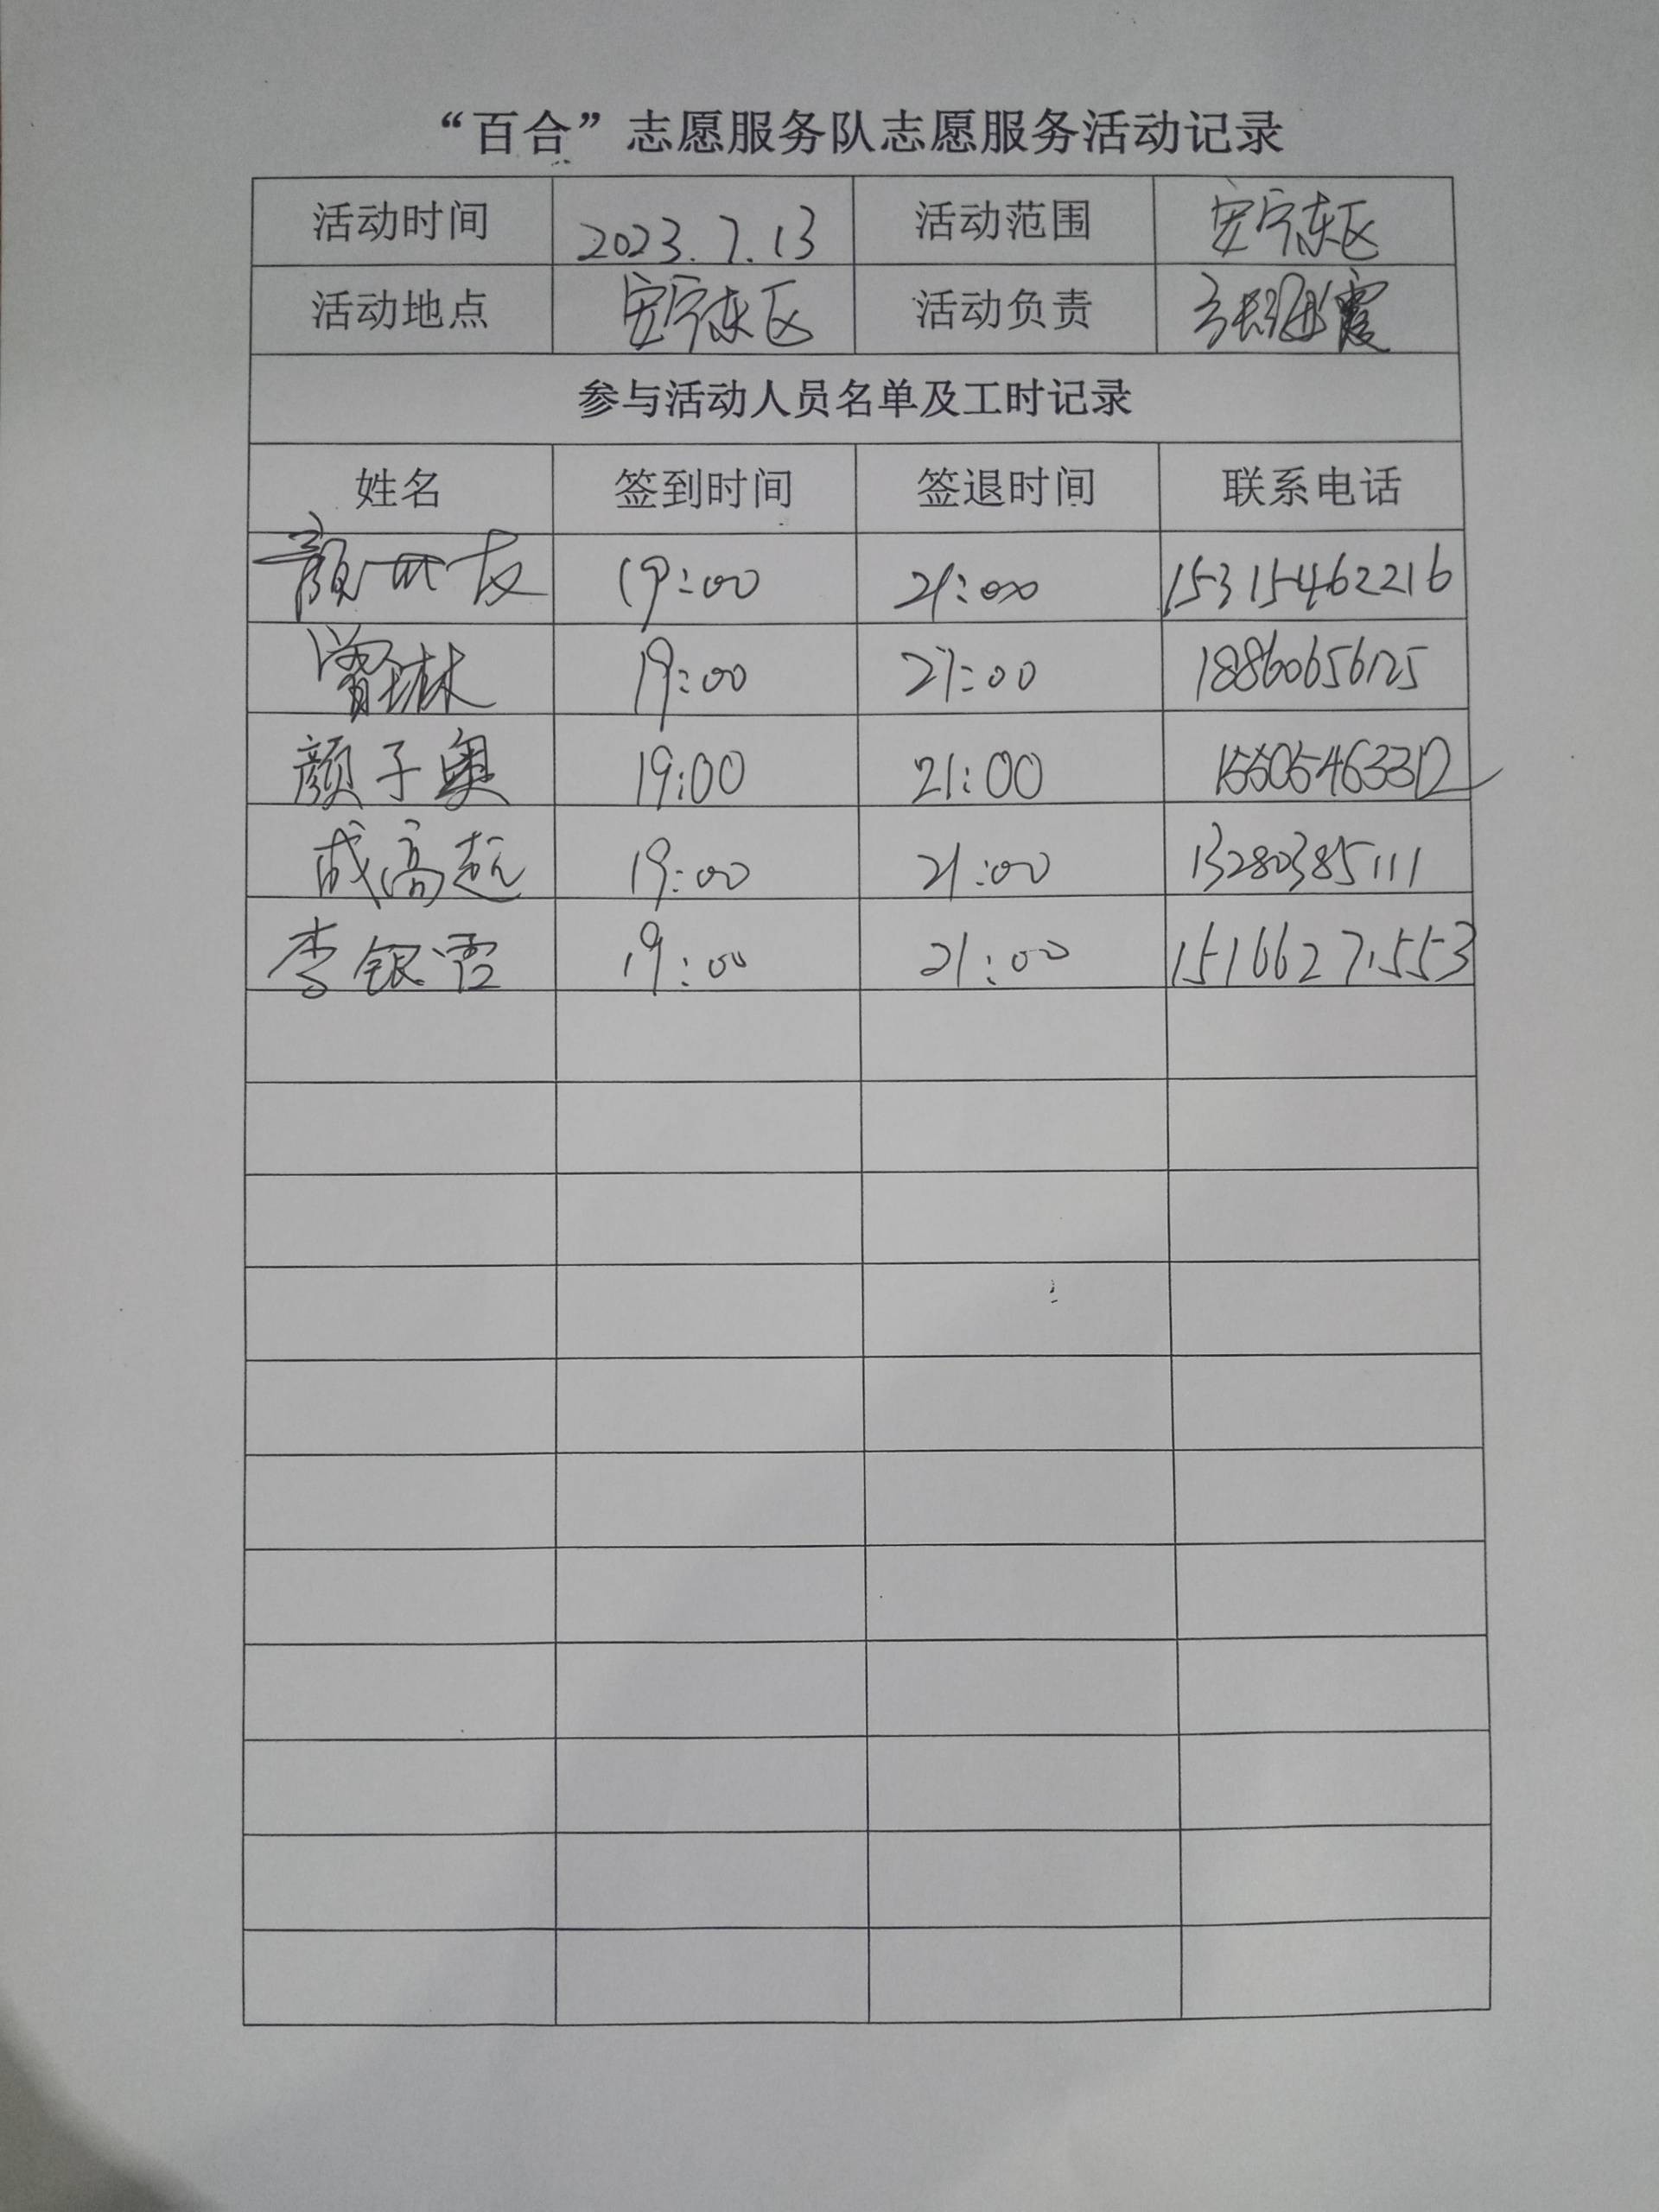 “百合”志愿服务队志愿服务活动记录
活动时间 2023.7.13 活动范围 安宁东区
活动地点 安宁东区 活动负责
参与活动人员名单及工时记录
姓名 签到时间 签退时间 联系电话
颜世友 19:00 21:00 15315462216
曾琳 19:00 21:00 18860656125
颜子奥 19:00 21:00 15505463312
成高超 19:00 21:00 13280385111
李银雪 19:00 21:00 15166271553